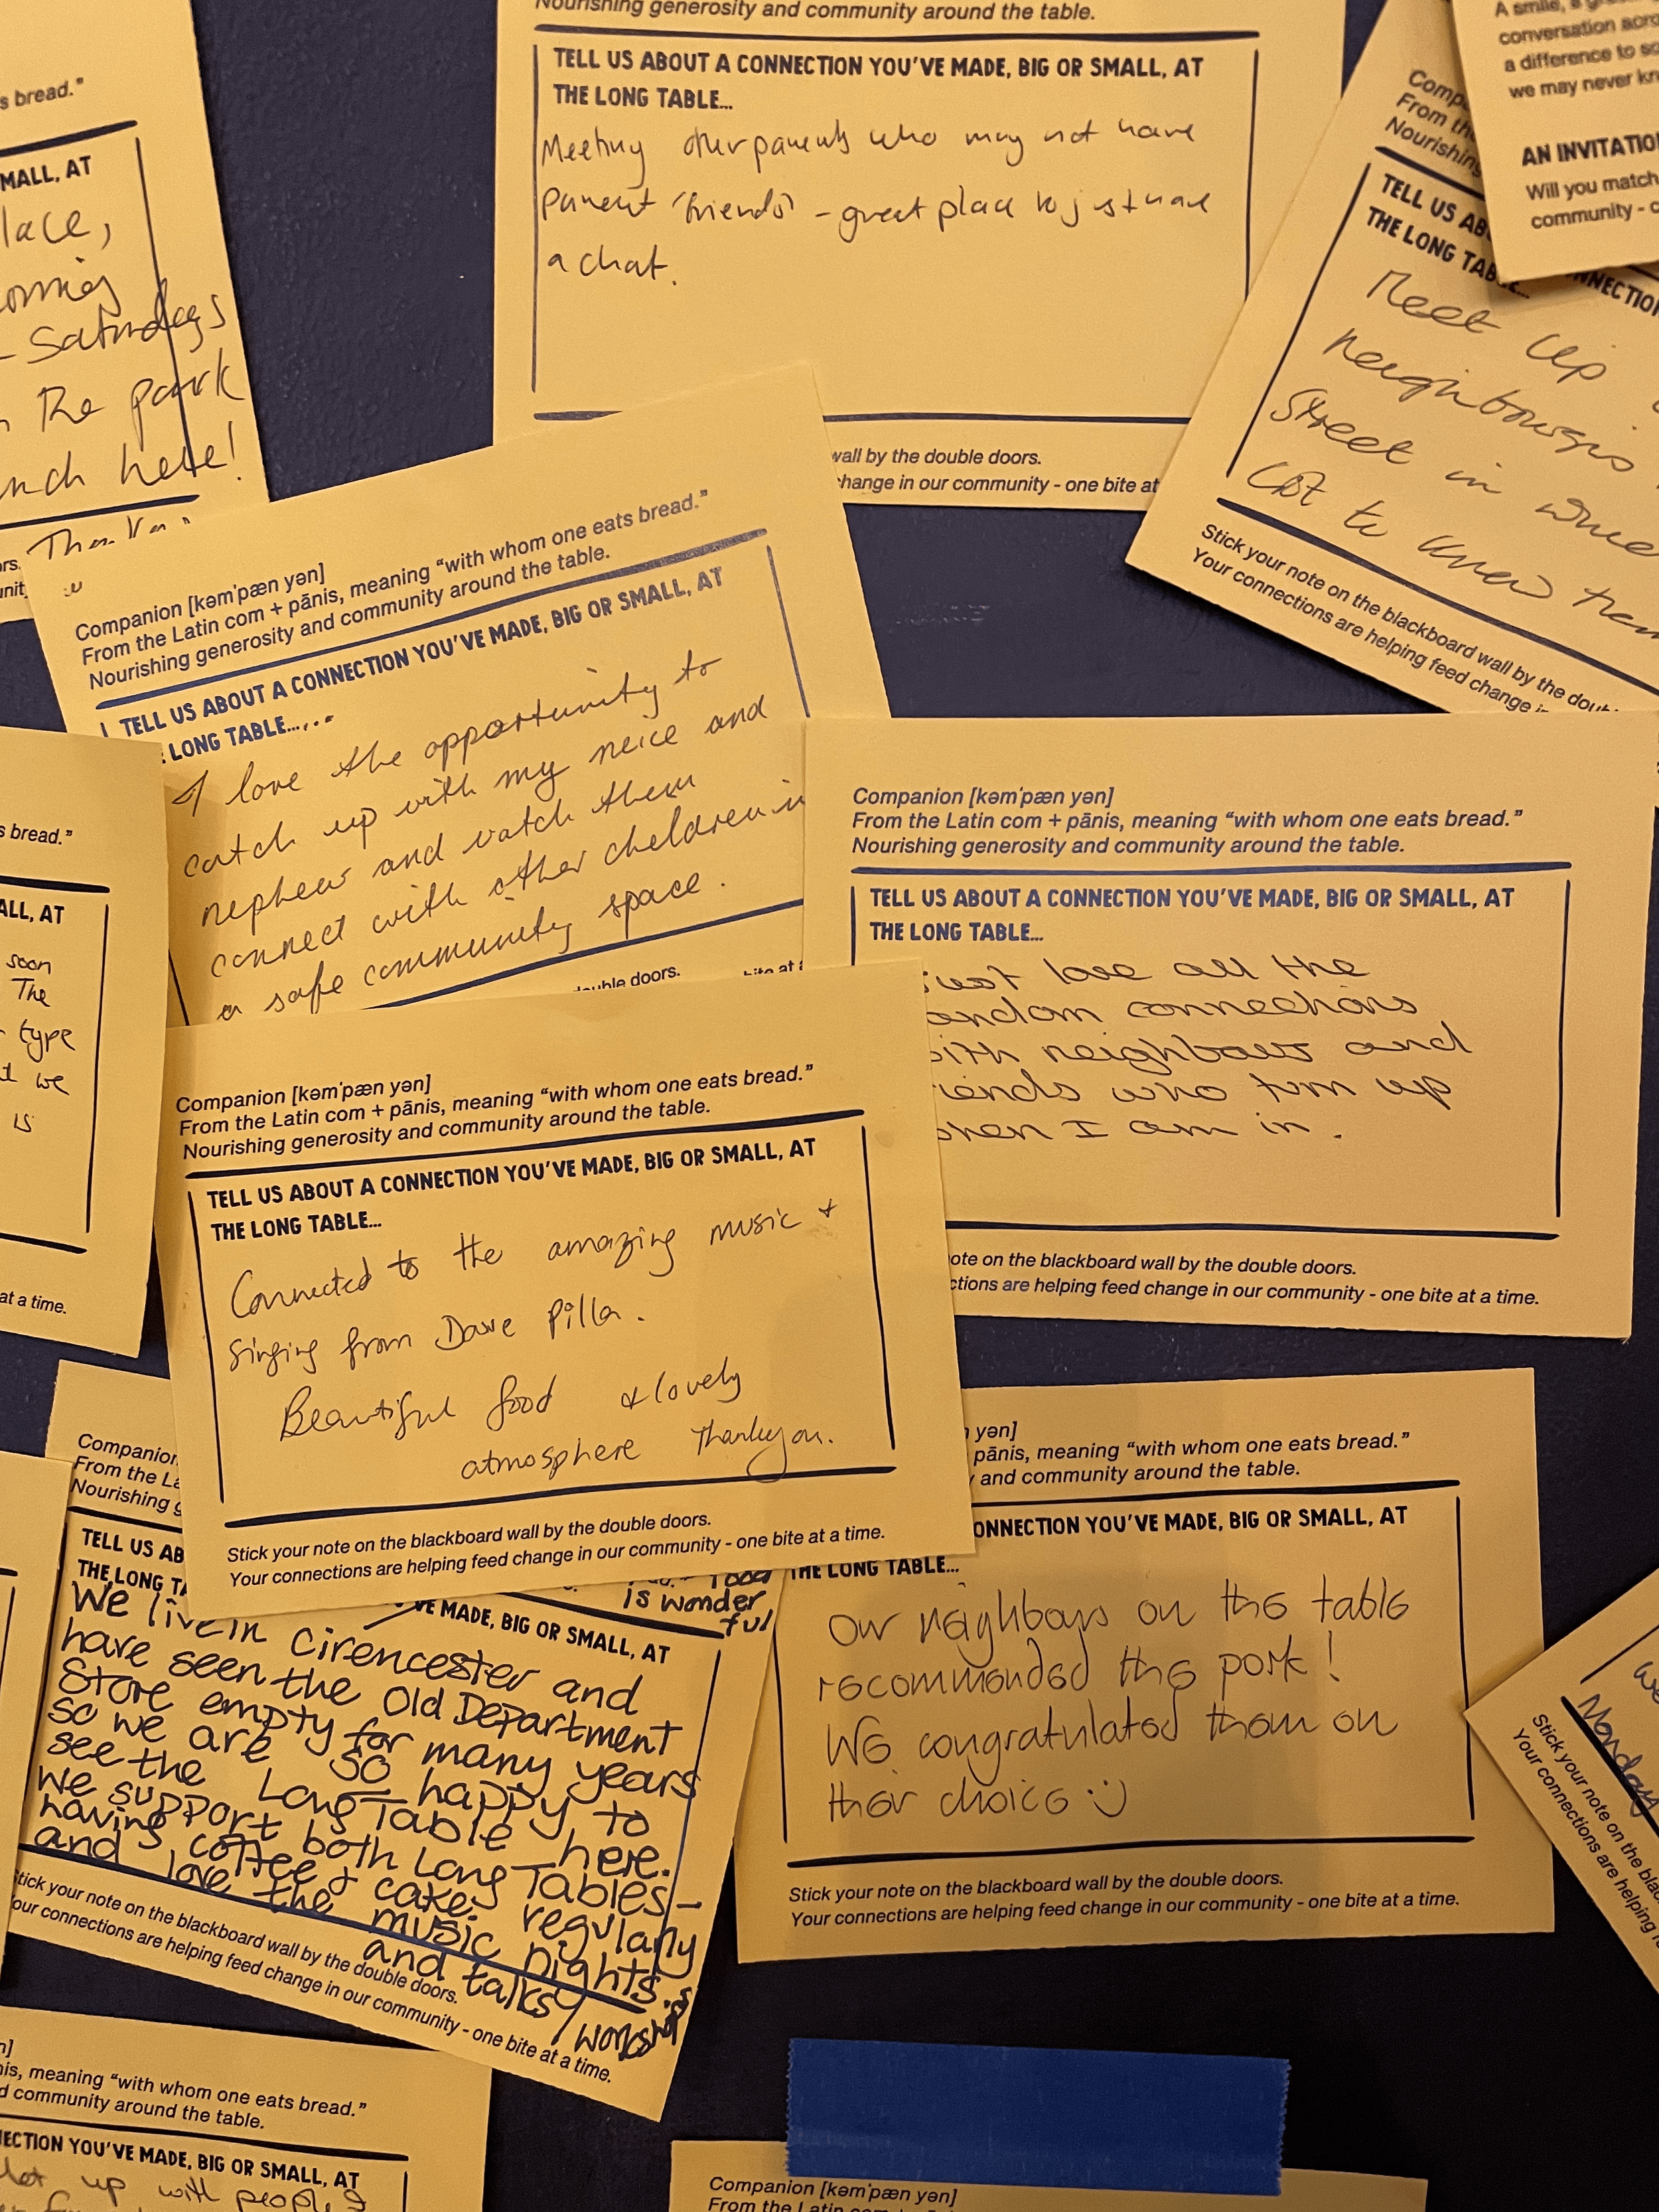 Nourishing generosity and community around the table.
TELL US ABOUT A CONNECTION YOU'VE MADE, BIG OR SMALL, AT
THE LONG TABLE...
Meeting other parents who may not have
parent 'friends' - great place to just have
a chat.
wall by the double doors.
change in our community - one bite at
s bread."
MALL, AT
lace,
Saturdays
the park
here!
A smile, a
conversation
a difference to
we may never
AN INVITATIO
Will you match
community -
From
Nourishing
TELL US AB
THE LONG TAB
NNECTION
Meet up
neighbours
Street in
Got to know them
Stick your note on the blackboard wall by the doub
Your connections are helping feed change in
Companion [kəm'pæn yən]
From the Latin com + pānis, meaning "with whom one eats bread."
Nourishing generosity and community around the table.
TELL US ABOUT A CONNECTION YOU'VE MADE, BIG OR SMALL, AT
LONG TABLE.....
I love the opportunity to
catch up with my neice and
nephew and watch them
connect with other children in
a safe community space.
double doors.
bite at
Companion [kəm'pæn yən]
From the Latin com + pānis, meaning "with whom one eats bread."
Nourishing generosity and community around the table.
TELL US ABOUT A CONNECTION YOU'VE MADE, BIG OR SMALL, AT
THE LONG TABLE...
ust love all the
andom connections
ith neighbours and
iends who turn up
hen I am in.
ote on the blackboard wall by the double doors.
ctions are helping feed change in our community - one bite at a time.
s bread."
ALL, AT
soon
The
type
we
is
at a time.
Companion [kəm'pæn yən]
From the Latin com + pānis, meaning "with whom one eats bread."
Nourishing generosity and community around the table.
TELL US ABOUT A CONNECTION YOU'VE MADE, BIG OR SMALL, AT
THE LONG TABLE...
Connected to the amazing music +
singing from Dave Pilla.
Beautiful food & lovely
atmosphere Thankyou.
Stick your note on the blackboard wall by the double doors.
Your connections are helping feed change in our community - one bite at a time.
Companion
From the La
Nourishing g
TELL US AB
THE LONG TA
food
is wonder
ful
VE MADE, BIG OR SMALL, AT
We live in Cirencester and
have seen the Old Department
Store empty for many years
so we are so happy to
see the Long Table here.
We support both Long Tables -
having coffee & cakes regularly
and love the music nights.
and talks / workshops
Stick your note on the blackboard wall by the double doors.
our connections are helping feed change in our community - one bite at a time.
yən]
pānis, meaning "with whom one eats bread."
and community around the table.
ONNECTION YOU'VE MADE, BIG OR SMALL, AT
THE LONG TABLE...
Our neighbours on the table
recommended the pork!
We congratulated them on
their choice :)
Stick your note on the blackboard wall by the double doors.
Your connections are helping feed change in our community - one bite at a time.
Monday
Stick your note on the
Your connections are helping
nis, meaning "with whom one eats bread."
d community around the table.
NECTION YOU'VE MADE, BIG OR SMALL, AT
up with people
Companion [kəm'pæn yən]
From the Latin com +